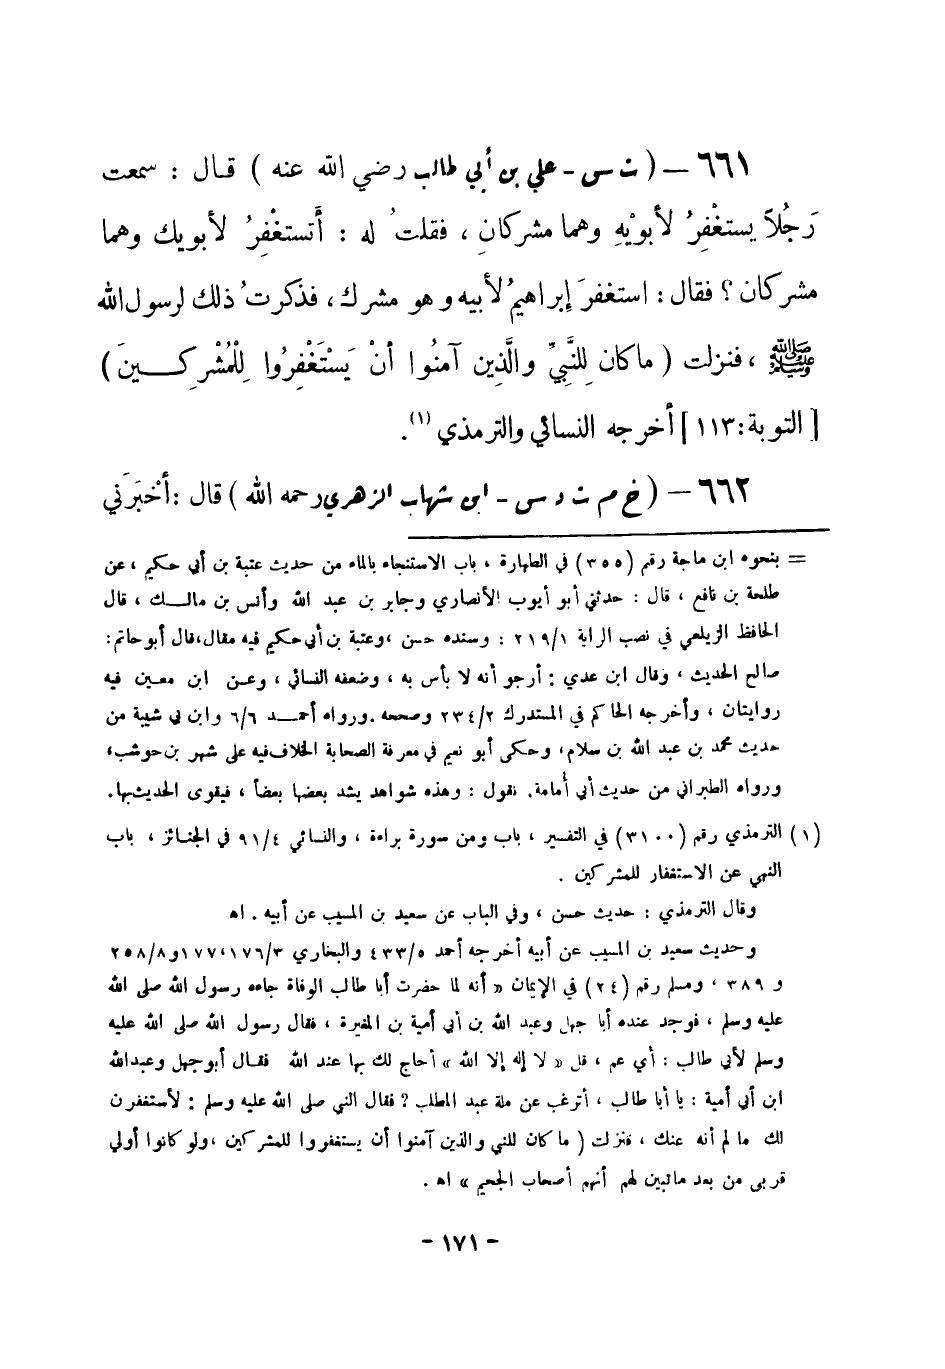 ٦٦١ – ( ت س - علي بن أبي طالب رضي الله عنه ) قـال : سمعت
رَجُلاً يستغْفِرُ لأبوَيْهِ وهما مشركانِ ، فقلتُ له : أَتستغْفِرُ لأبويك وهما
مشركان ؟ فقال : استغفرَ إبراهيمُ لأبيه و هو مشرك ، فذكرتُ ذلك لرسول الله
ﷺ ، فنزلت ( ما كان لِلنَّبيِّ والَّذِين آمنُوا أنْ يَسْتَغْفِرُوا لِلْمُشْرِكِــينَ )
[ التوبة : ١١٣ ] أخرجه النسائي والترمذي (١).
٦٦٢ – ( خ م ت د س - ابن شهاب الزهري رحمه الله ) قال : أَخْبَرَني
= بنحوه ابن ماجة رقم (٣٥٥) في الطهارة ، باب الاستنجاء بالماء من حديث عتبة بن أبي حكيم ، عن
طلحة بن نافع ، قال : حدثني أبو أيوب الأنصاري وجابر بن عبد الله وأنس بن مالــك ، قال
الحافظ الزيلعي في نصب الراية ٢١٩/١ : وسنده حسن ،وعتبة بن أبي حكيم فيه مقال،قال أبو حاتم :
صالح الحديث ، وقال ابن عدي : أرجو أنه لا بأس به ، وضعفه النسائي ، وعـن ابن معـين فيه
روايتان ، وأخرجه الحاكم في المستدرك ٢٣٤/٢ وصححه .ورواه أحمــد ٦/٦ وابن بي شيبة من
حديث محمد بن عبد الله بن سلام، وحكى أبو نعيم في معرفة الصحابة الخلاف فيه على شهر بن حوشب،
ورواه الطبراني من حديث أبي أُمامة. نقول : وهذه شواهد يشد بعضها بعضاً ، فيقوى الحديث بها.
(١) الترمذي رقم (٣١٠٠) في التفسير ، باب ومن سورة براءة ، والنسائي ٩١/٤ في الجنائز ، باب
النهي عن الاستغفار للمشركين .
وقال الترمذي : حديث حسن ، وفي الباب عن سعيد بن المسيب عن أبيه . اه
وحديث سعيد بن المسيب عن أبيه أخرجه أحمد ٤٣٣/٥ والبخاري ١٧٦/٣،١٧٧و٢٥٨/٨
و ٣٨٩ ، ومسلم رقم (٢٤) في الإيمان « أنه لما حضرت أبا طالب الوفاة جاءه رسول الله صلى الله
عليه وسلم ، فوجد عنده أبا جهل وعبد الله بن أبي أمية بن المغيرة ، فقال رسول الله صلى الله عليه
وسلم لأبي طالب : أي عم ، قل « لا إله إلا الله » أحاج لك بها عند الله فقـال أبوجهل وعبدالله
ابن أبي أمية : يا أبا طالب ، أترغب عن ملة عبد المطلب ؟ فقال النبي صلى الله عليه وسلم : لأستغفرن
لك ما لم أنه عنك ، فنزلت ( ما كان للنبي والذين آمنوا أن يستغفروا للمشركين ،ولو كانوا أولي
قربى من بعد ماتبين لهم أنهم أصحاب الجحيم » اه .
- ١٧١ -